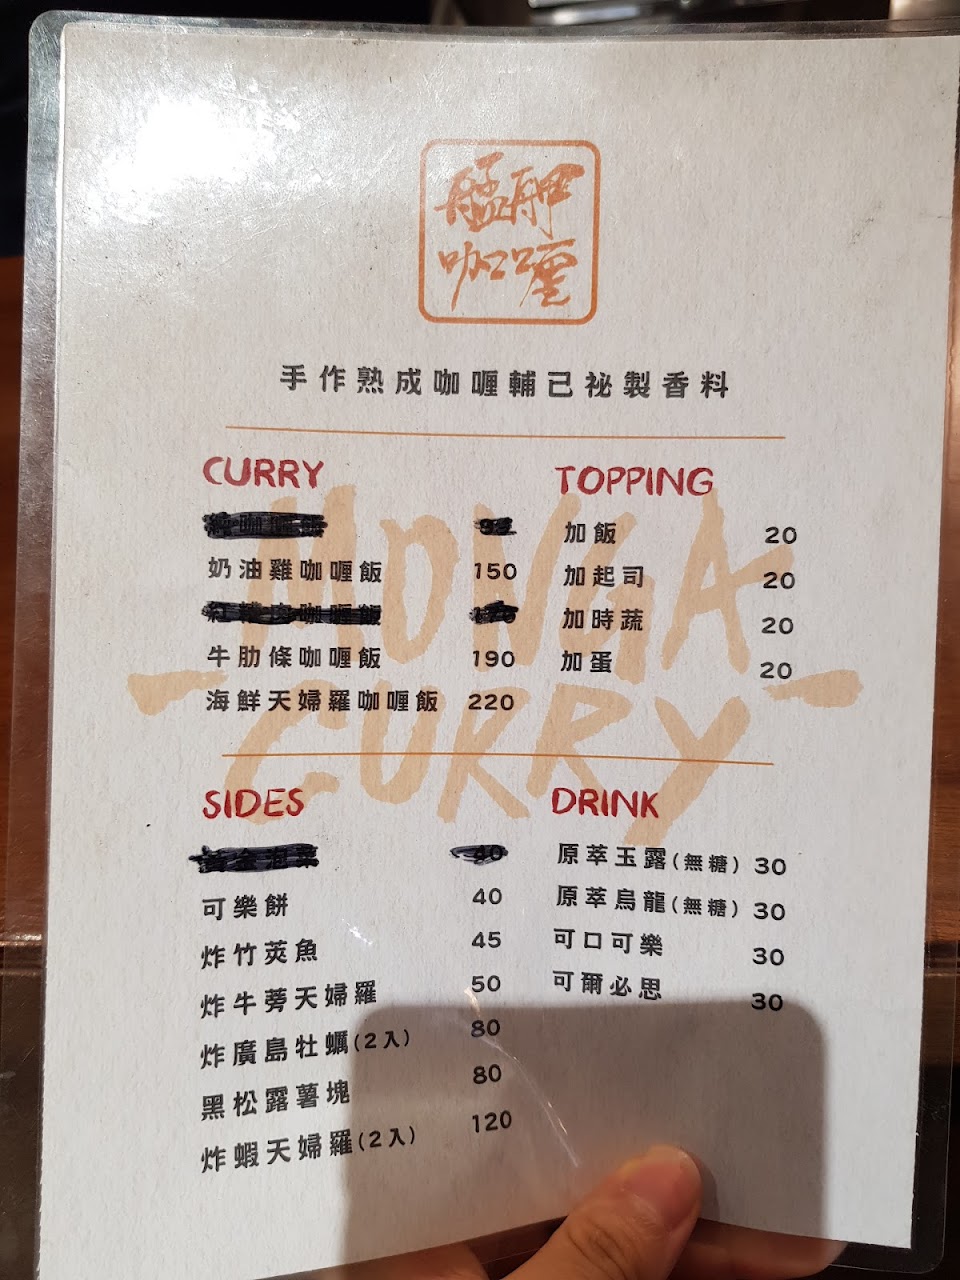 艋舺
咖喱
手作熟成咖喱輔已祕製香料
MONGA
CURRY
CURRY
奶油雞咖喱飯 150
紅糟肉咖喱飯
牛肋條咖喱飯 190
海鮮天婦羅咖喱飯 220
TOPPING
加飯 20
加起司 20
加時蔬 20
加蛋 20
SIDES
40
可樂餅 40
炸竹莢魚 45
炸牛蒡天婦羅 50
炸廣島牡蠣(2入) 80
黑松露薯塊 80
炸蝦天婦羅(2入) 120
DRINK
原萃玉露(無糖) 30
原萃烏龍(無糖) 30
可口可樂 30
可爾必思 30